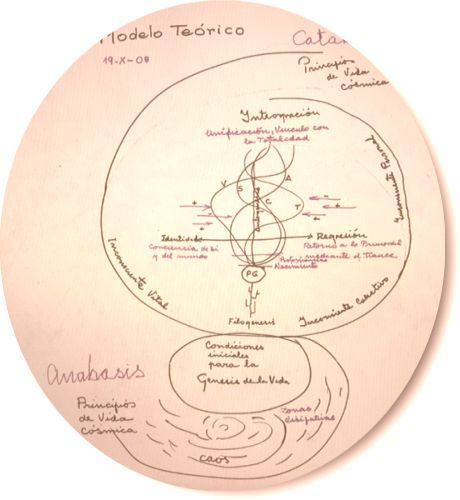 Modelo Teórico
19-X-08
Cata
Principios
de Vida
Cósmica
Integración
Unificación, Vínculo con
la Totalidad
Inconsciente Vital
V
S
A
C
T
+
+
Identidad
Conciencia de si
y del mundo
Regresión
Retorno a lo Primordial
mediante el Trance
Nacimiento
PG
Inconsciente Colectivo
Filogenesis
Condiciones
iniciales
para la
Genesis de la Vida
Anabasis
Principios
de Vida
Cósmica
zonas
disipativas
caos